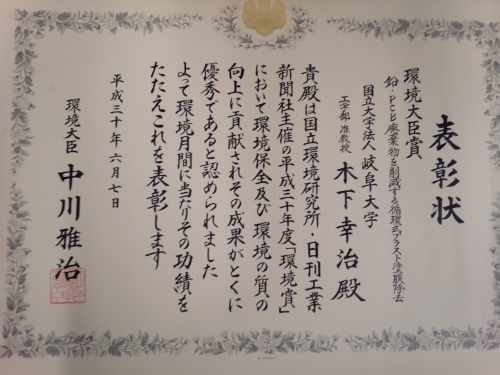 表彰状
環境大臣賞
鉛・PCB廃棄物を削減する循環式ブラスト塗膜除去
国立大学法人 岐阜大学
工学部 准教授 木下幸治殿
貴殿は国立環境研究所・日刊工業
新聞社主催の平成三十年度「環境賞」
において環境保全及び環境の質の
向上に貢献されその成果がとくに
優秀であると認められました
よって環境月間に当たりその功績を
たたえこれを表彰します
平成三十年六月七日
環境大臣 中川雅治